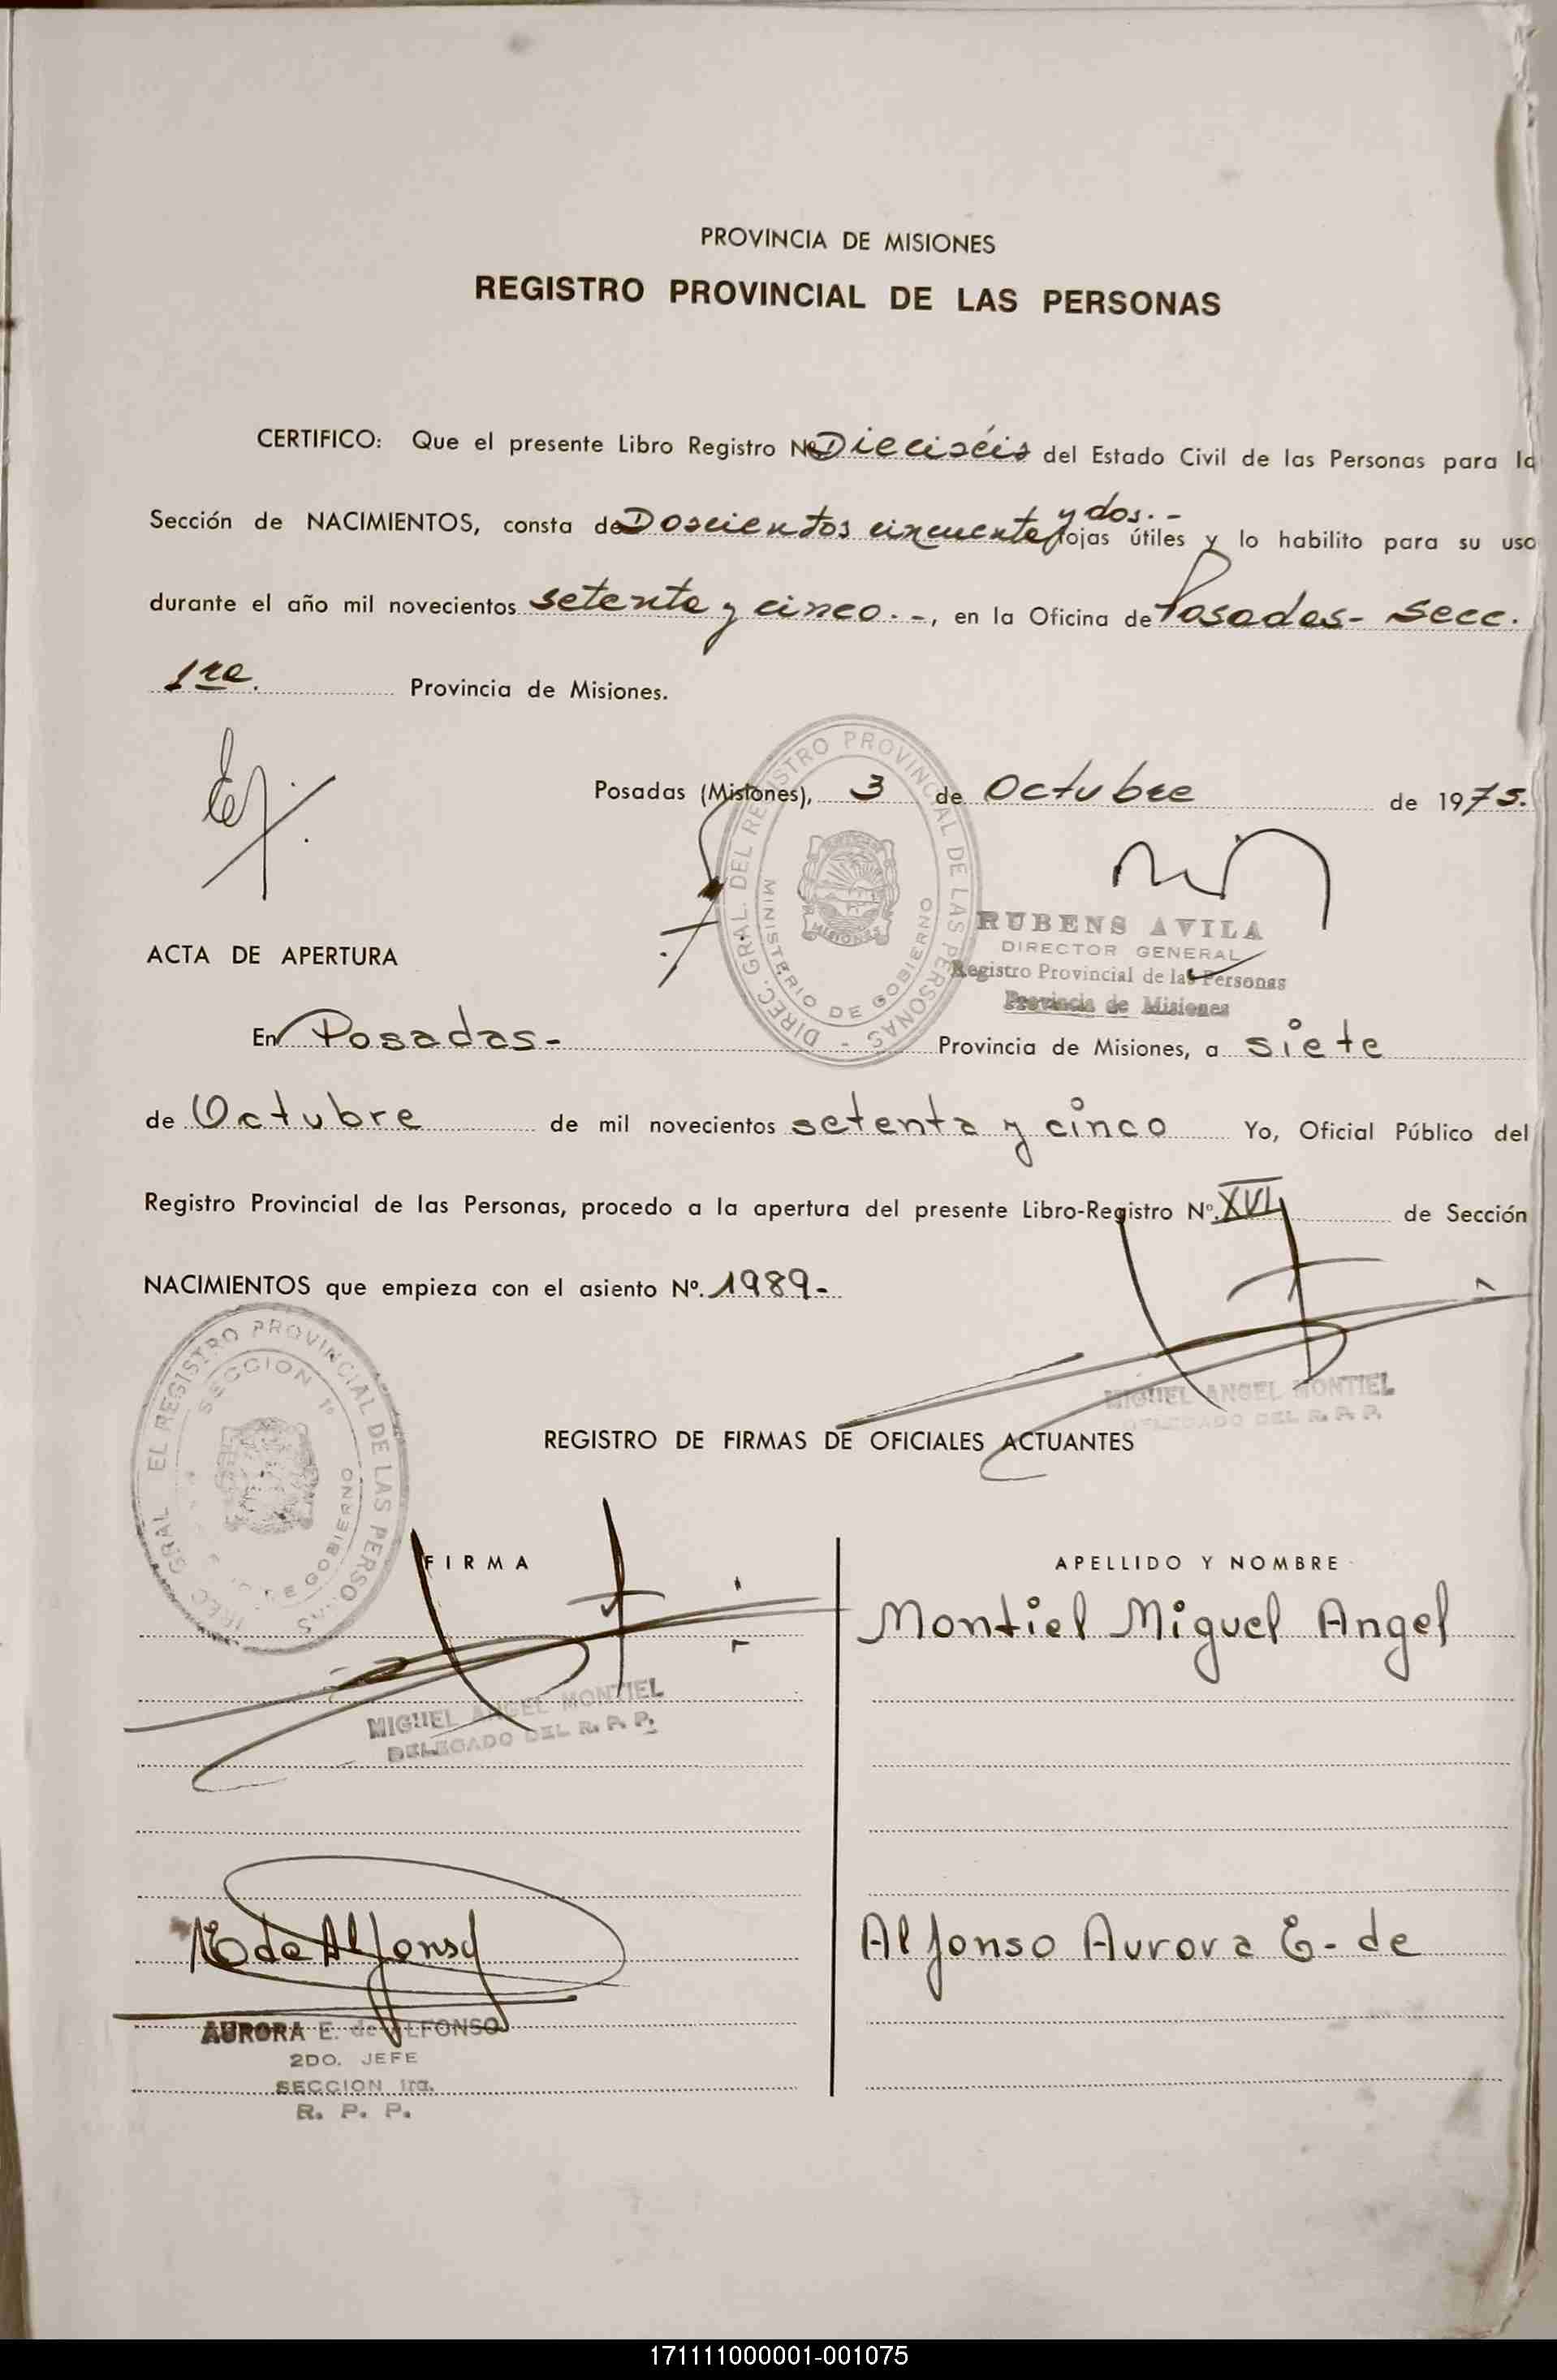 PROVINCIA DE MISIONES
REGISTRO PROVINCIAL DE LAS PERSONAS
CERTIFICO: Que el presente Libro Registro Nº Dieciséis del Estado Civil de las Personas para la
y dos.-
Sección de NACIMIENTOS, consta de Doscientos cincuenta fojas útiles y lo habilito para su uso
durante el año mil novecientos setenta y cinco.-, en la Oficina de Posadas- Secc.
1ra. Provincia de Misiones.
Posadas (Misiones), 3 de Octubre de 1975.
DIREC. GRAL. DEL REGISTRO PROVINCIAL DE LAS PERSONAS -
MINISTERIO DE GOBIERNO
MISIONES
RUBENS AVILA
DIRECTOR GENERAL
Registro Provincial de las Personas
Provincia de Misiones
ACTA DE APERTURA
En Posadas- Provincia de Misiones, a siete
de Octubre de mil novecientos setenta y cinco Yo, Oficial Público del
Registro Provincial de las Personas, procedo a la apertura del presente Libro-Registro Nº. XVI de Sección
NACIMIENTOS que empieza con el asiento Nº. 1989-
DIREC GRAL EL REGISTRO PROVINCIAL DE LAS PERSONAS
SECCION 1º
DE GOBIERNO
MIGUEL ANGEL MONTIEL
DELEGADO DEL R. P. P.
REGISTRO DE FIRMAS DE OFICIALES ACTUANTES
FIRMA APELLIDO Y NOMBRE
Montiel Miguel Angel
MIGUEL ANGEL MONTIEL
DELEGADO DEL R. P. P.
E de Alfonso Alfonso Aurora E. de
AURORA E. de ALFONSO
2DO. JEFE
SECCION 1ra.
R. P. P.
171111000001-001075